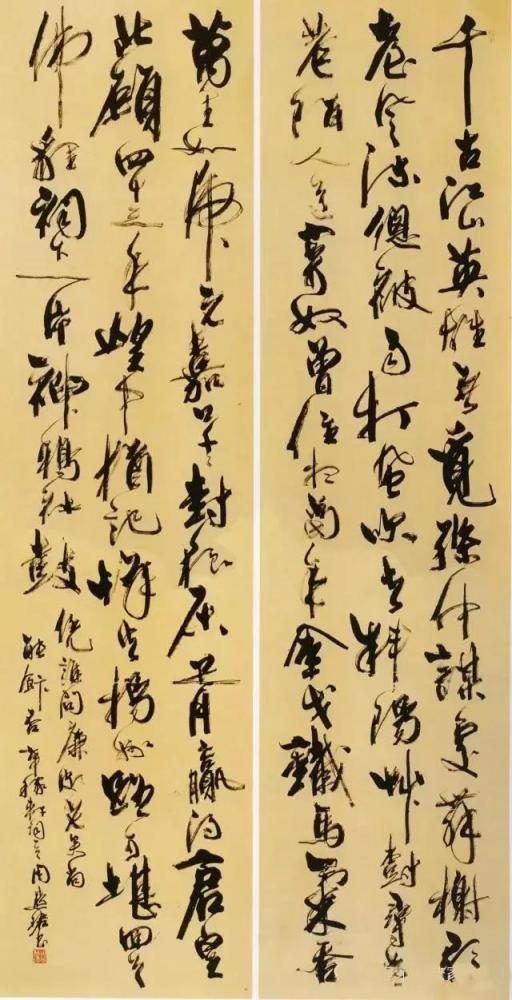 千古江山英雄無覓孫仲謀處舞榭歌
臺風流總被雨打風吹去斜陽草樹尋常
巷陌人道寄奴曾住想當年金戈鐵馬氣吞
萬里如虎元嘉草草封狼居胥贏得倉皇
北顧四十三年望中猶記烽火揚州路可堪回首
佛狸祠下一片神鴉社鼓
憑誰問廉頗老矣尚
能飯否辛稼軒詞周書